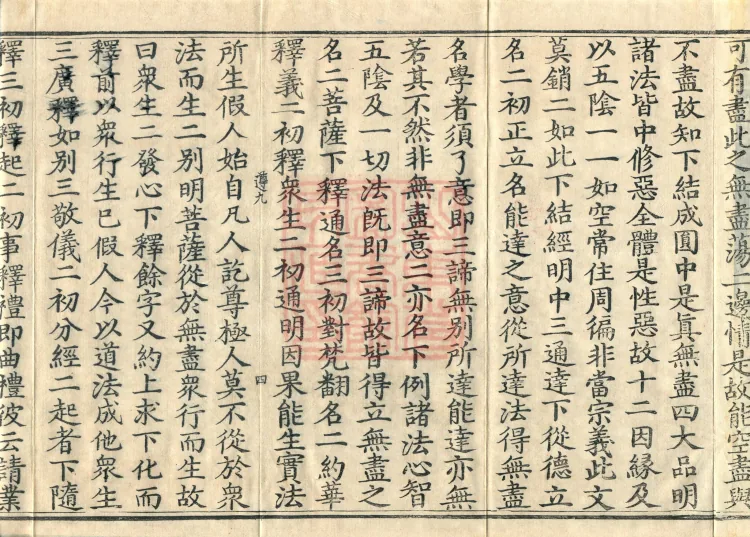 可有盡此之無盡蕩二邊情是故能空盡與
不盡故知下結成圓中是眞無盡四大品明
諸法皆中修惡全體是性惡故十二因緣及
以五陰一一如空常住周徧非當宗義此文
莫銷二如此下結經明中三通達下從德立
名二初正立名能達之意從所達法得無盡
名學者須了意即三諦無別所達能達亦無
若其不然非無盡意二亦名下例諸法心智
五陰及一切法旣即三諦故皆得立無盡之
名二菩薩下釋通名三初對梵翻名二約華
釋義二初釋衆生二初通明因果能生實法
溥九
四
所生假人始自凡人訖尊極人莫不從於衆
法而生二別明菩薩從於無盡衆行而生故
曰衆生二發心下釋餘字又約上求下化而
釋前以衆行生已假人今以道法成他衆生
三廣釋如別三敬儀二初分經二起者下隨
釋三初釋起二初事釋禮即曲禮彼云請業